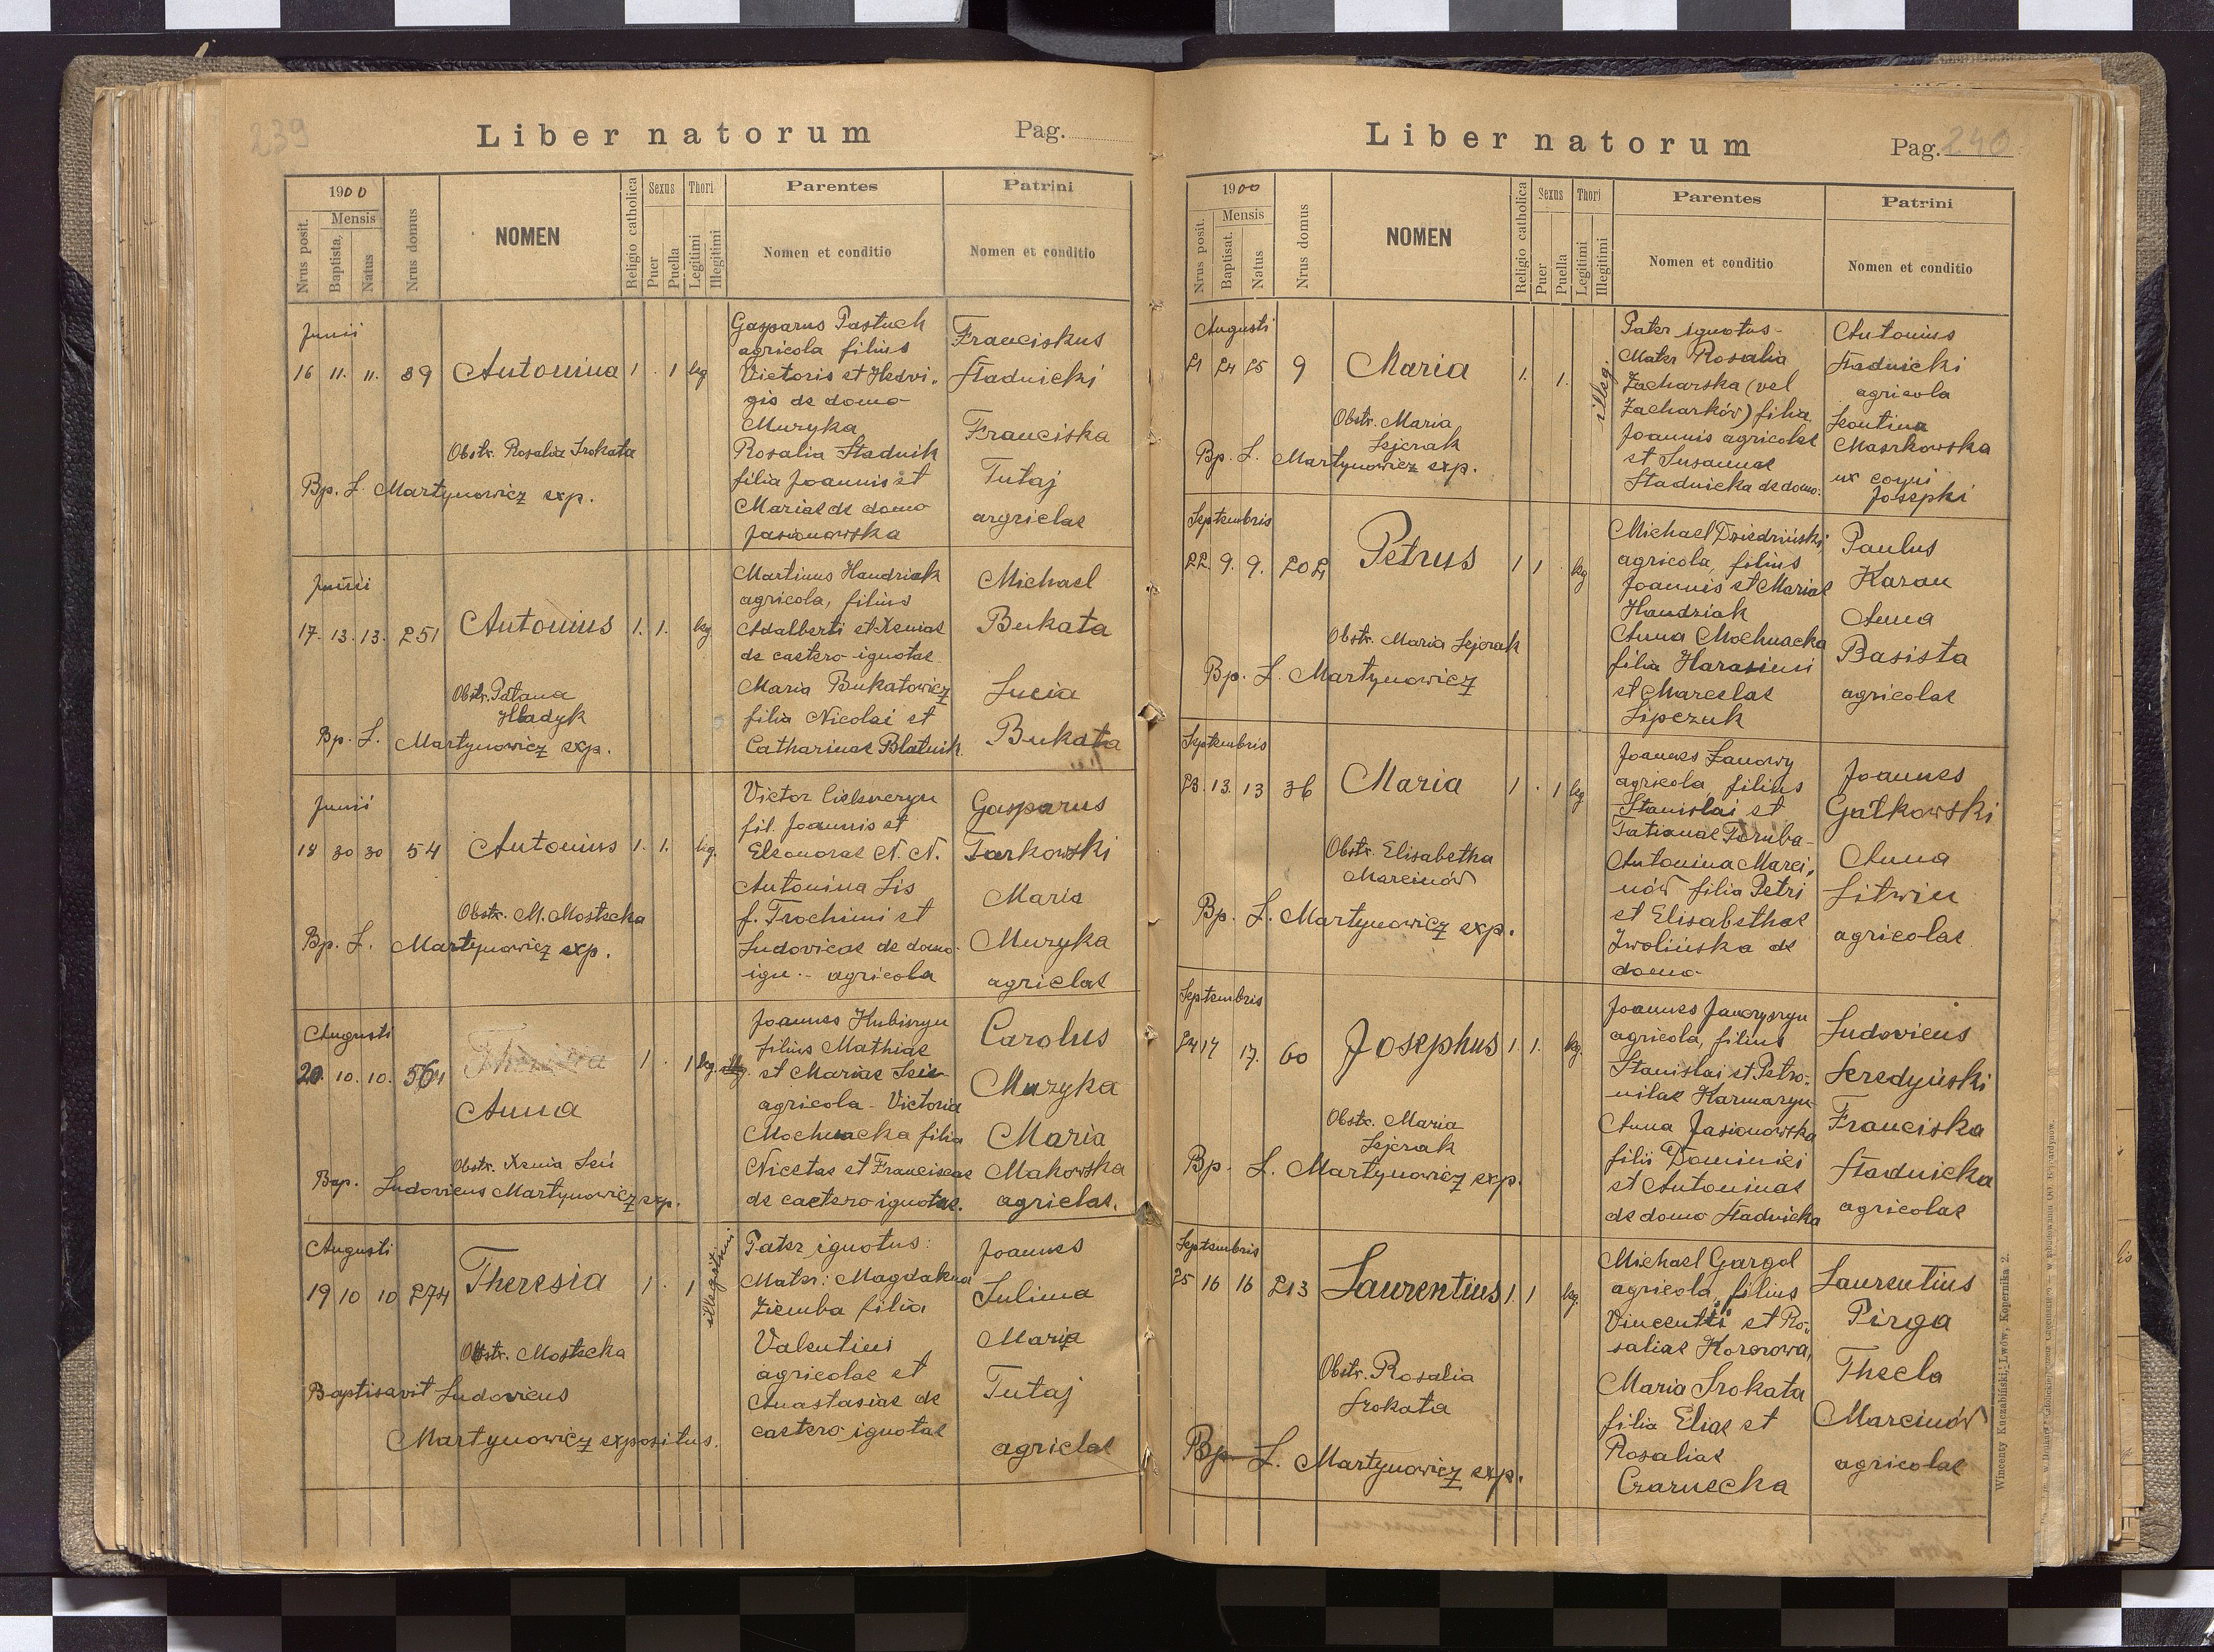 239
Liber natorum
Pag.
1900
Nrus posit.
Mensis
Baptista.
Natus
Nrus domus
NOMEN
Religio catholica
Sexus
Puer
Puella
Thori
Legitimi
Illegitimi
Parentes
Nomen et conditio
Patrini
Nomen et conditio
Junii
16 11. 11. 89 Antonina 1 . 1 leg
Obstr. Rosalia Srokata
Bp. L. Martynowicz exp.
Gasparus Pastuch
agricola filius
Victoris et Hedvi„
gis de domo
Muzyka
Rosalia Stadnik
filia Joannis et
Mariae de domo
Jasionowska
Franciskus
Stadnicki
Franciska
Tutaj
argrielae
Junii
17. 13. 13. 251 Antonius 1. 1. leg
Obstr. Tatana
Hladyk
Bp. L. Martynowicz exp.
Martinus Handziak
agricola, filius
Adalberti et Xeniae
de caetero ignotae
Maria Bukatowicz
filia Nicolai et
Catharinae Blatnik
Michael
Bukata
Lucia
Bukata
Junii
18 30 30 54 Antonius 1. 1. leg.
Obstr. M. Mostecka
Bp. L. Martynowicz exp.
Victor
fil. Joannis et
Eleonorae N. N.
Antonina Lis
f. Trochimi et
Ludovicae de domo
ign. - agricola
Gasparus
Tarkowski
Maria
Muzyka
agrielae
Augusti
20. 10. 10. 564 Theresia 1 . 1 leg. illeg.
Anna
Obstr. Xenia
Bap. Ludovicus Martynowicz exp.
Joannes Hubiszyn
filius Mathiae
et Mariae
agricola - Victoria
Mochnacka filia
Nicetae et Franciscae
de caetero ignotae.
Carolus
Muzyka
Maria
Makowska
agrielae.
Augusti
19 10 10 274 Theresia 1 . 1 illegitimi
Obstr. Mostecka
Baptisavit Ludovicus
Martynowicz expositus.
Pater ignotus:
Mater: Magdalena
Ziemba filia
Valentini
agricolae et
Anastasiae de
caetero ignotae
Joannes
Sulima
Maria
Tutaj
agrielae
Liber natorum
Pag. 240
1900
Nrus posit.
Mensis
Baptisat.
Natus
Nrus domus
NOMEN
Religio catholica
Sexus
Puer
Puella
Thori
Legitimi
Illegitimi
Parentes
Nomen et conditio
Patrini
Nomen et conditio
Augusti
21 24 25 9 Maria 1. 1. illeg.
Obstr. Maria
Lejczak
Bp. L. Martynowicz exp.
Pater ignotus-
Mater Rosalia
Zacharska (vel
Zacharków) filia
Joannis agricolae
et Susannae
Stadnicka de domo.
Antonius
Stadnicki
agricola
Leontina
Masrkowska
ux
Josephi
Septembris
22. 9. 9. 202 Petrus 1 1 leg
Obstr. Maria Lejczak
Bp. L. Martynowicz
Michael Dziedziński
agricola, filius
Joannis et Mariae
Handziak
Anna Mochnacka
filia Harasimi
et Marcelae
Lipczuk
Paulus
Karan
Anna
Basista
agricolae
Septembris
23. 13. 13 36 Maria 1 . 1 leg
Obstr. Elisabetha
Marcinów
Bp. L. Martynowicz exp.
Joannes Łanowy
agricola, filius
Stanislai et
Tatianae Poruba-
Antonina Marci„
nów filia Petri
et Elisabethae
Zwolińska de
domo-
Joannes
Gałkowski
Anna
Litwin
agricolae
Septembris
24 17 17. 60 Josephus 1. 1. leg.
Obstr. Maria
Lejczak
Bp. L. Martynowicz exp.
Joannes
agricola, filius
Stanislai et Petro„
nilae Karmazyn
Anna Jasionowska
filii Dominici
et Antoninae
de domo Stadnicka
Ludovicus
Seredyński
Franciska
Stadnicka
agricolae
Septembris
25 16 16 213 Laurentius 1. 1 leg.
Obstr. Rosalia
Srokata
Bp. L. Martynowicz exp.
Michael Gargol
agricola, filius
Vincentii et Ro„
saliae Kozorowa,
Maria Srokata
filia Eliae et
Rosaliae
Czarnecka
Laurentius
Pirga
Thecla
Marcinów
agricolae
Wincenty Kuczabiński; Lwów, Kopernika 2.